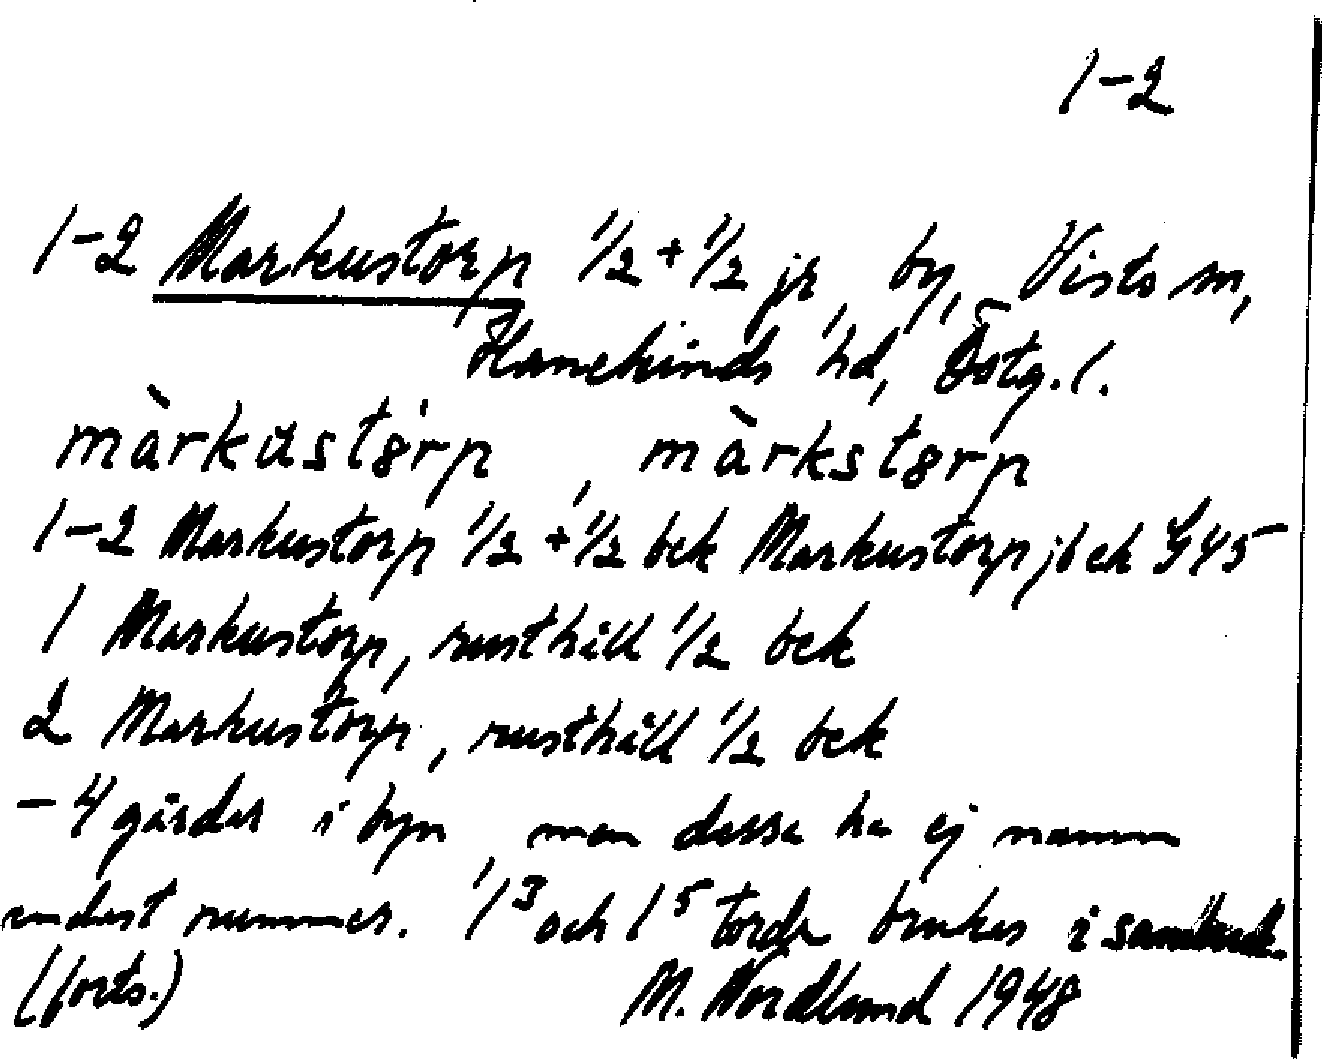 1-2
1-2 Markustorp 1/2 + 1/2 jr, by, Vists sn,
Hanekinds hd, Östg. l.
màrkustórp, màrkstørp
1-2 Markustorp 1/2 + 1/2 bek Markustorp jb ek G45
1 Markustorp, rusthåll 1/2 bek
2 Markustorp, rusthåll 1/2 bek
- 4 gårdar i byn, men dessa ha ej namn
endast nummer. 1³ och 1⁵ torde brukas i sambruk.
(forts.) M. Nordlund 1948